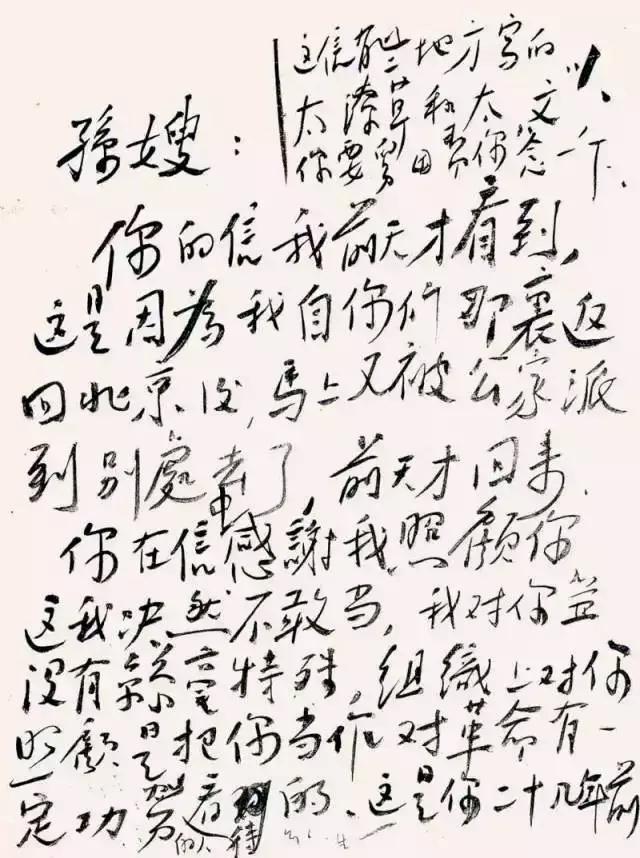 这信有些地方写的
太潦草和太文
你要 你念一下.
孫嫂:
你的信我前天才看到,
这是因為我自你们那裏返
回北京没,馬上又被公家派
到别處去了,前天才回来.
你在信中感謝我照顧你
这我决然不敢当,我对你並
没有絲毫特殊,组織上对你
照顧是把你当作对革命有一
定功劳的人看待的、这是你二十几年前